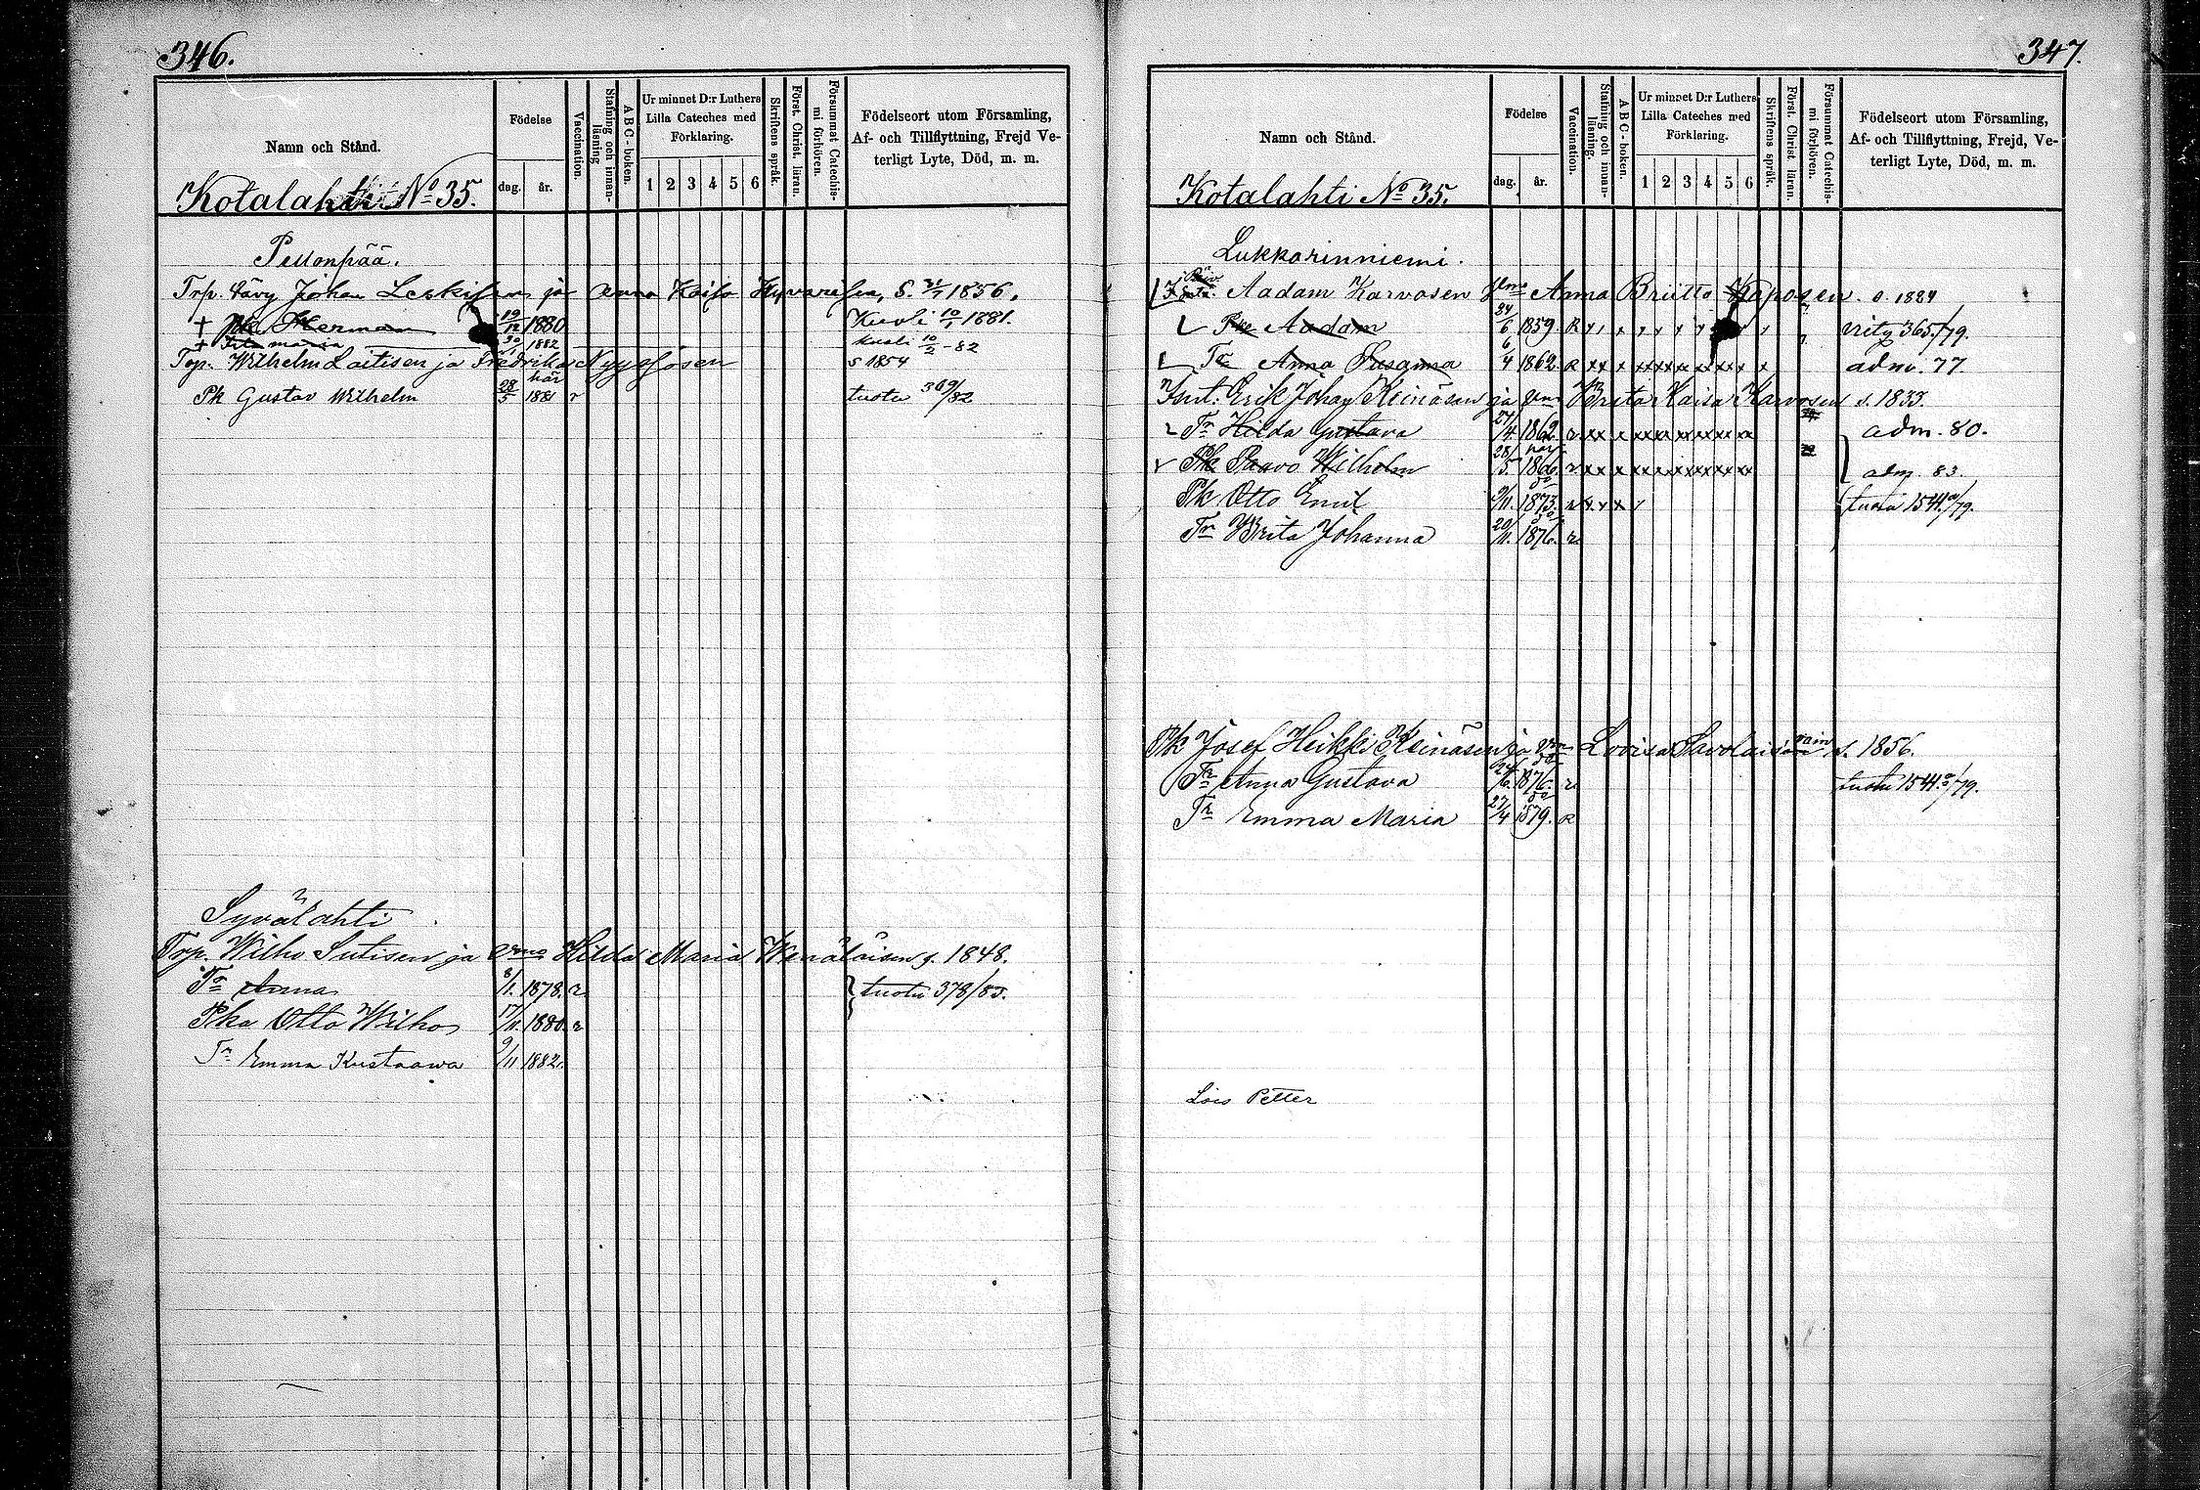 346.
Namn och Stånd.
Födelse
dag.
år.
Vaccination.
Stafning och innan-
läsning
ABC-boken.
Ur minnet D:r Luthers
Lilla Cateches med
Förklaring.
1 2 3 4 5 6
Skriftens språk.
Först. Christ. läran.
Försummat Catechis-
mi förhören.
Födelseort utom Församling,
Af- och Tillflyttning, Frejd Ve-
terligt Lyte, Död, m. m.
Kotalahti No 35.
Pellonpää.
Trp. Johan Leskisen ja Anna Kaisa Hyvärisen, S. 1856.
+ Pk Herman 19/12 1880 Kuoli 10/1 1881.
+ Maria 1882 Kuoli 10/2 - 82
Trp. Wilhelm Laitisen ja Fredrika s 1854
Pk Gustav Wilhelm 28/5 1881 r tuotu 369/82
Syvälahti
Trp. Wilho Sutisen ja Hilda Maria Wenäläisen s. 1848.
Tr Anna 8/1. 1878. r tuotu 378/85.
Pka Otto Wilho 17/11. 1880. r
Tr Emma Kustaawa 9/11 1882.
347.
Namn och Stånd.
Födelse
dag.
år.
Vaccination.
Stafning och innan-
läsning.
ABC-boken.
Ur minnet D:r Luthers
Lilla Cateches med
Förklaring.
1 2 3 4 5 6
Skriftens språk.
Först. Christ. läran.
Försummat Catechis-
mi förhören.
Födelseort utom Församling,
Af- och Tillflyttning, Frejd, Ve-
terligt Lyte, Död, m. m.
Kotalahti No 35.
Lukkarinniemi.
Aadam Karvosen Anna Briitto s. 1824
Pk Aadam 6 1859. R
Tr Anna Susanna 6/4 1862. R adm. 77.
Inl. Erik Johan Keinäsen ja Brita Kaisa Karvosen s. 1835.
Tr Hilda Gustava 27/4. 1862. r adm. 80.
Pk Paavo Wilhelm 28/5. 1866. r adm. 83.
Pk Otto Emil 9/11. 1873. tuotu 1544/79.
Tr Brita Johanna 20/11. 1876. r
Pk Josef Heikki Keinäsen ja Lovisa Savolaisen s. 1856.
Tr Anna Gustava 24/6. 1876. r tuotu 1544/79.
Tr Emma Maria 27/4 1879. R
Petter